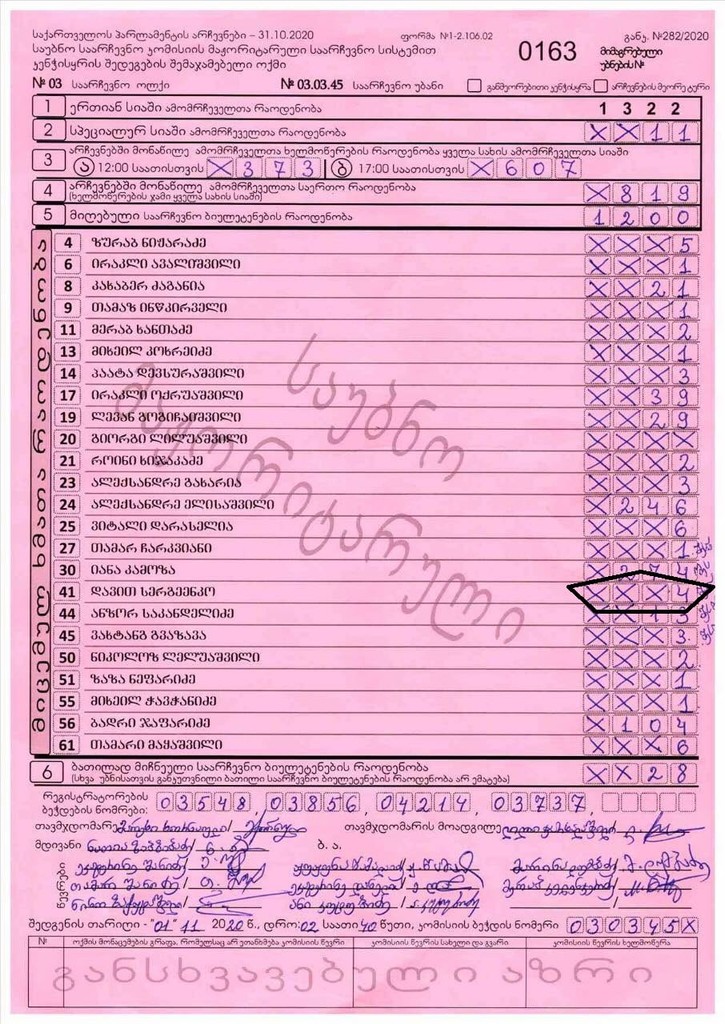 საქართველოს პარლამენტის არჩევნები – 31.10.2020 ფორმა №1-2.106.02 განკ. №282/2020
საუბნო საარჩევნო კომისიის მაჟორიტარული საარჩევნო სისტემით 0163 მიმაგრებული
კენჭისყრის შედეგების შემაჯამებელი ოქმი უბნების№
№ 03 საარჩევნო ოლქი № 03.03.45 საარჩევნო უბანი განმეორებითი კენჭისყრა არჩევნების მეორე ტური
1 ერთიან სიაში ამომრჩეველთა რაოდენობა 1 3 2 2
2 სპეციალურ სიაში ამომრჩეველთა რაოდენობა X X 1 1
3 არჩევნებში მონაწილე ამომრჩეველთა ხელმოწერების რაოდენობა ყველა სახის ამომრჩეველთა სიაში
ა 12:00 საათისთვის X 3 7 3 ბ 17:00 საათისთვის X 6 0 7
4 არჩევნებში მონაწილე ამომრჩეველთა საერთო რაოდენობა X 8 1 9
(ხელმოწერების ჯამი ყველა სახის სიაში)
5 მიღებული საარჩევნო ბიულეტენების რაოდენობა 1 2 0 0
მიცემულ ხმათა რაოდენობა
4 ზურაბ ნიჟარაძე X X X 5
6 ირაკლი ავალიშვილი X X X 1
8 კახაბერ ძაგანია X X 2 1
9 თამაზ ინწკირველი X X X 1
11 მერაბ ხანთაძე X X X 2
13 მიხეილ კოხრეიძე X X X 1
14 პაატა დევსურაშვილი X X X 3
17 ირაკლი ოქრუაშვილი X X 3 9
19 ლევან გოგიჩაიშვილი X X 2 9
20 გიორგი ლილუაშვილი X X X X
21 როინი ხიჯაკაძე X X X 2
23 ალექსანდრე გახარია X X X 3
24 ალექსანდრე ელისაშვილი X 2 4 6
25 ვიტალი დარასელია X X X 6
27 თამარ ჩარკვიანი X X X 1
30 იანა კამოზა X 2 7 4
41 დავით სერგეენკო X X X 4
44 ანზორ საკანდელიძე X X 1 3
45 ვახტანგ გვაზავა X X X 3
50 ნიკოლოზ ლელუაშვილი X X X 2
51 ზაზა ნეფარიძე X X X 1
55 მიხეილ ჭავჭანიძე X X X 1
56 ბადრი ჯაფარიძე X 1 0 4
61 თამარი მაყაშვილი X X X 6
საუბნო
მაჟორიტარული
6 ბათილად მიჩნეული საარჩევნო ბიულეტენების რაოდენობა X X 2 8
(სხვა უბნისათვის განკუთვნილი ბათილი საარჩევნო ბიულეტენების რაოდენობა არ ემატება)
რეგისტრატორების
ბეჭდების ნომრები: 03548, 03856, 04214, 03737,
თავმჯდომარე თავმჯდომარის მოადგილე
მდივანი ბ. ა.
წევრები
შედგენის თარიღი - "01" 11 2020 წ., დრო: 02 საათი 40 წუთი, კომისიის ბეჭდის ნომერი 0 3 0 3 4 5 X
№ ოქმის მონაცემების გრაფა, რომელსაც არ ეთანხმება კომისიის წევრი კომისიის წევრის სახელი და გვარი კომისიის წევრის ხელმოწერა
განსხვავებული აზრი